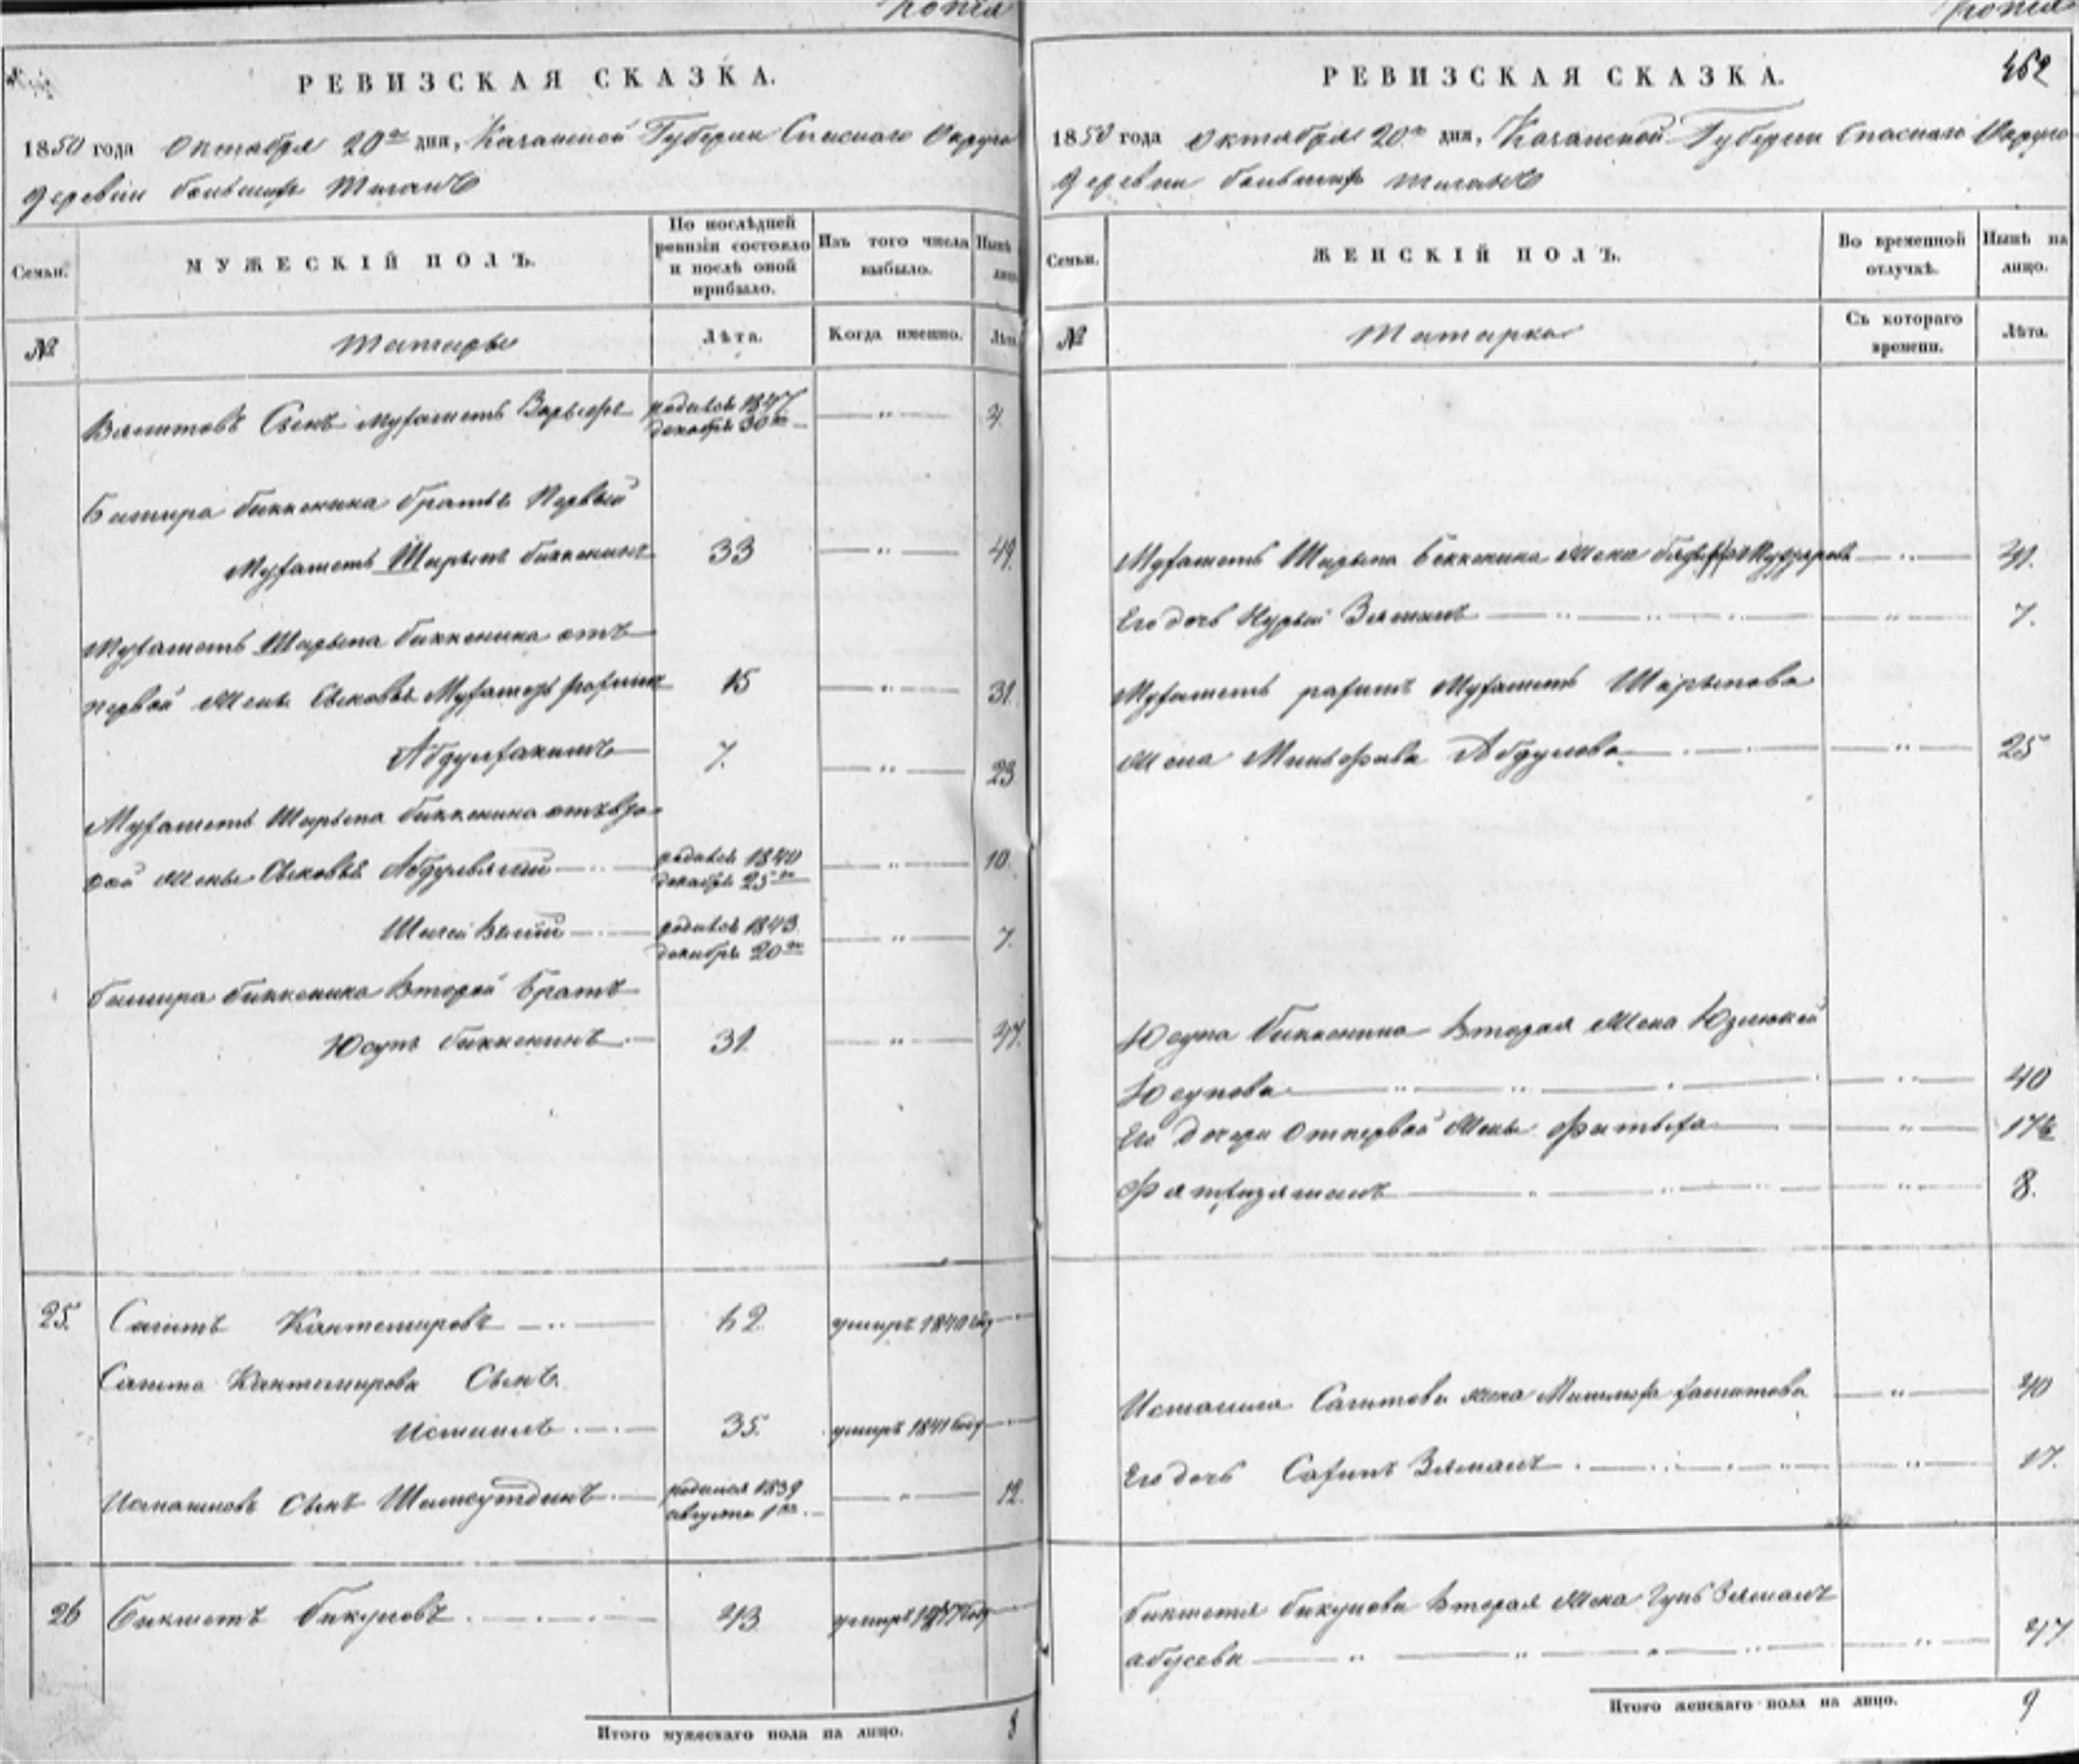 Копія
РЕВИЗСКАЯ СКАЗКА.
1850 года Октября 20го дня, Казанской Губерніи Спаскаго Округа
деревни большихъ Тиганъ
Семьи.
МУЖЕСКІЙ ПОЛЪ.
По послѣдней ревизіи состояло и послѣ оной прибыло.
Изъ того числа выбыло.
Нынѣ лицо
№
Татары
Лѣта.
Когда именно.
Лѣта
Валитовъ Сынъ Мухаметъ Зарыфъ родился 1847 декабря 30го 3.
Башира биккенина братья Первый
Мухаметь Шарыпъ биккенинъ 33 49.
Мухаметь Шарыпа биккенина отъ
первой Жены Сыновья Мухаметь рахимъ 15 31.
Абдулхакимъ 7. 23
Мухаметь Шарыпа биккенина отъ вто
рой жены Сыновья родился 1840 декабря 25го 10.
родился 1843 декабря 20го 7.
башира биккенина Второй братъ
Юсупъ биккенинъ 31. 47.
25. Сагитъ Кантемировъ 62 умиръ 1840 году
Сагита Кантемирова Сынъ
Исмаилъ 35. умиръ 1841 году
Исмаиловъ Сынъ Шамсутдинъ родился 1839 августа 1го 12.
26 Бикметь бикуловъ 43 умиръ 1847 году
Итого мужескаго пола на лицо. 8
Копія
462
РЕВИЗСКАЯ СКАЗКА.
1850 года Октября 20го дня, Казанской Губерніи Спаскаго Округа
деревни большихъ Тиганъ
Семьи.
ЖЕНСКІЙ ПОЛЪ.
Во временной отлучкѣ.
Нынѣ на лицо.
№
Татарка
Съ котораго времени.
Лѣта.
Мухаметь Шарыпа Биккенина Жена
Его дочь Нурый Зяманъ 7.
Мухаметь рахимъ Мухаметь Шарыпова
Жена Абдулова 25
Юсупа биккенина Вторая Жена
Юсупова 40
Его дочери От первой Жены Фатыха 17½
8.
Исмаила Сагитова жена 40
Его дочь Сафипъ Зяманъ 17.
бикметя бикулова Вторая Жена Гуль Зяманъ
абусева 47
Итого женскаго пола на лицо. 9